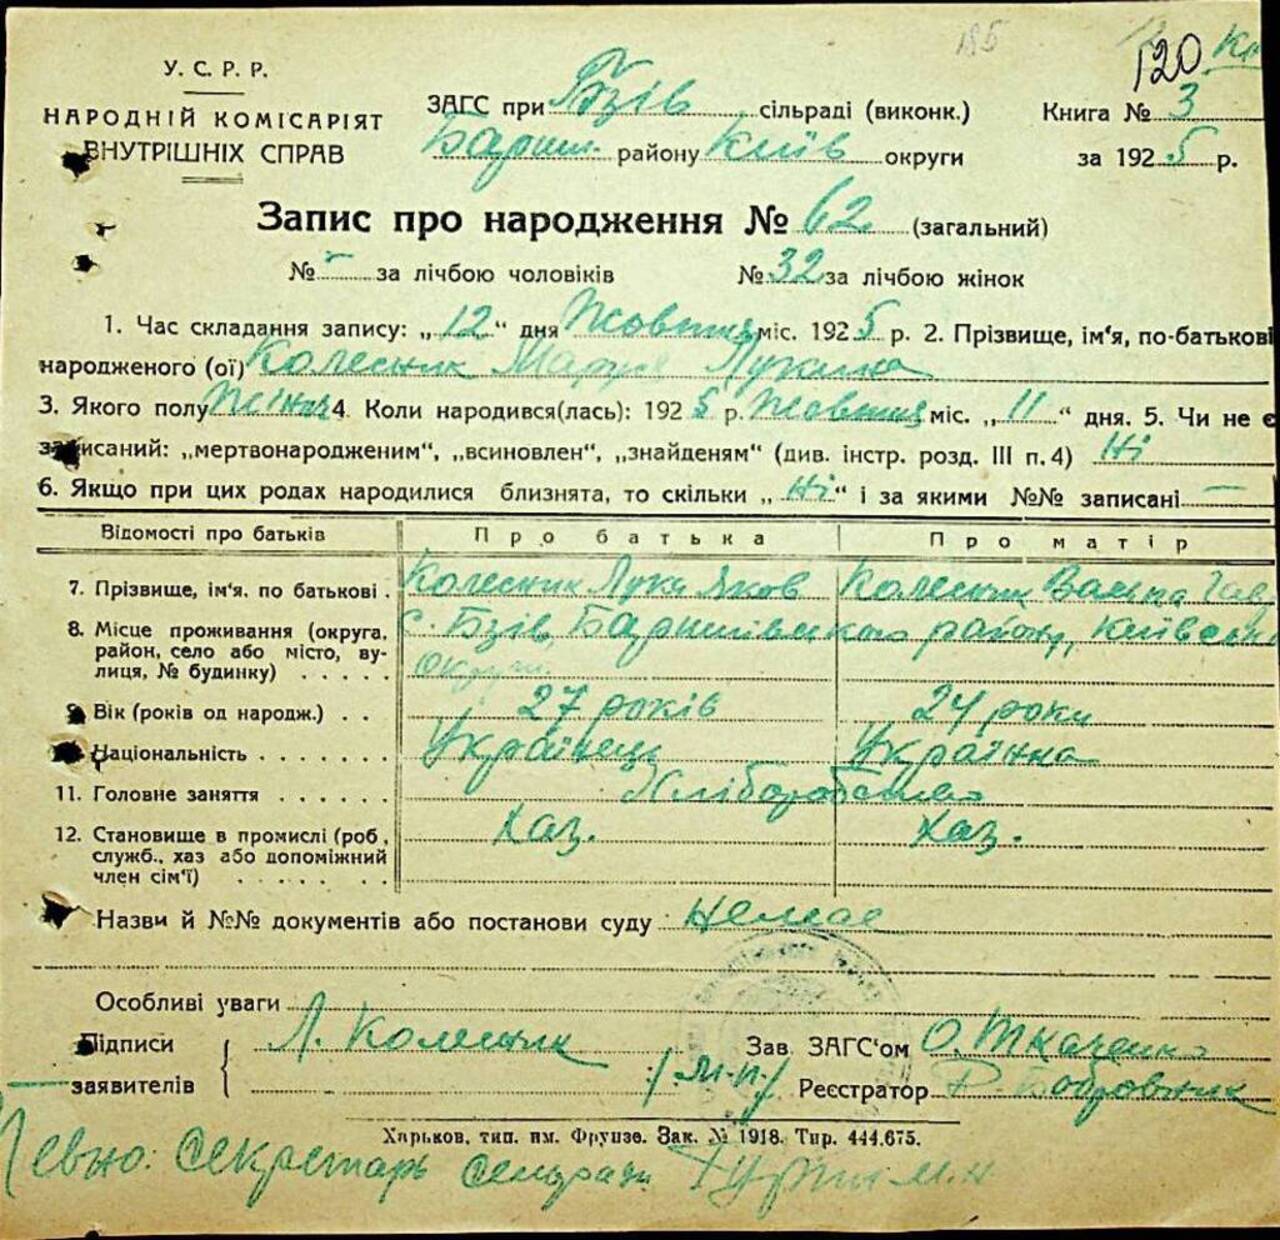 195
120 Кн
У. С. Р. Р.
НАРОДНІЙ КОМІСАРІЯТ
ВНУТРІШНІХ СПРАВ
ЗАГС при Бзів сільраді (виконк.)
Бариш. району Київ округи
Книга № 3
за 1925 р.
Запис про народження № 62 (загальний)
№ - за лічбою чоловіків № 32 за лічбою жінок
1. Час складання запису: „12“ дня Жовтня міс. 1925 р. 2. Прізвище, ім'я, по-батькові
народженого (ої) Колесник Маруся Лукина
3. Якого полу Жіноч 4. Коли народився(лась): 1925 р. Жовтня міс. „11“ дня. 5. Чи не є
записаний: „мертвонародженим“, „всиновлен“, „знайденям“ (див. інстр. розд. III п. 4) Ні
6. Якщо при цих родах народилися близнята, то скільки „Ні“ і за якими №№ записані —
Відомості про батьків Про батька Про матір
7. Прізвище, ім'я, по батькові . Колесник Лука Яков Колесник Гав
8. Місце проживання (округа, район, село або місто, вулиця, № будинку) . . . . . с. Бзів, Баришівського району, Київсько
округи
9. Вік (років од народж.) . . 27 років 24 роки
Національність . . . . . . . Українець Українка
11. Головне заняття . . . . . . Хліборобство
12. Становище в промислі (роб., служб., хаз або допоміжний член сім'ї) . . . . . . Хаз. Хаз.
Назви й №№ документів або постанови суду Немає
Особливі уваги
Підписи Л. Колесник Зав ЗАГС'ом О. Ткаченко
заявителів /М.п./ Реєстратор Бобровник
Харьков, тип. им. Фрунзе. Зак. № 1918. Тир. 444.675.
Певно: Секретарь сельради